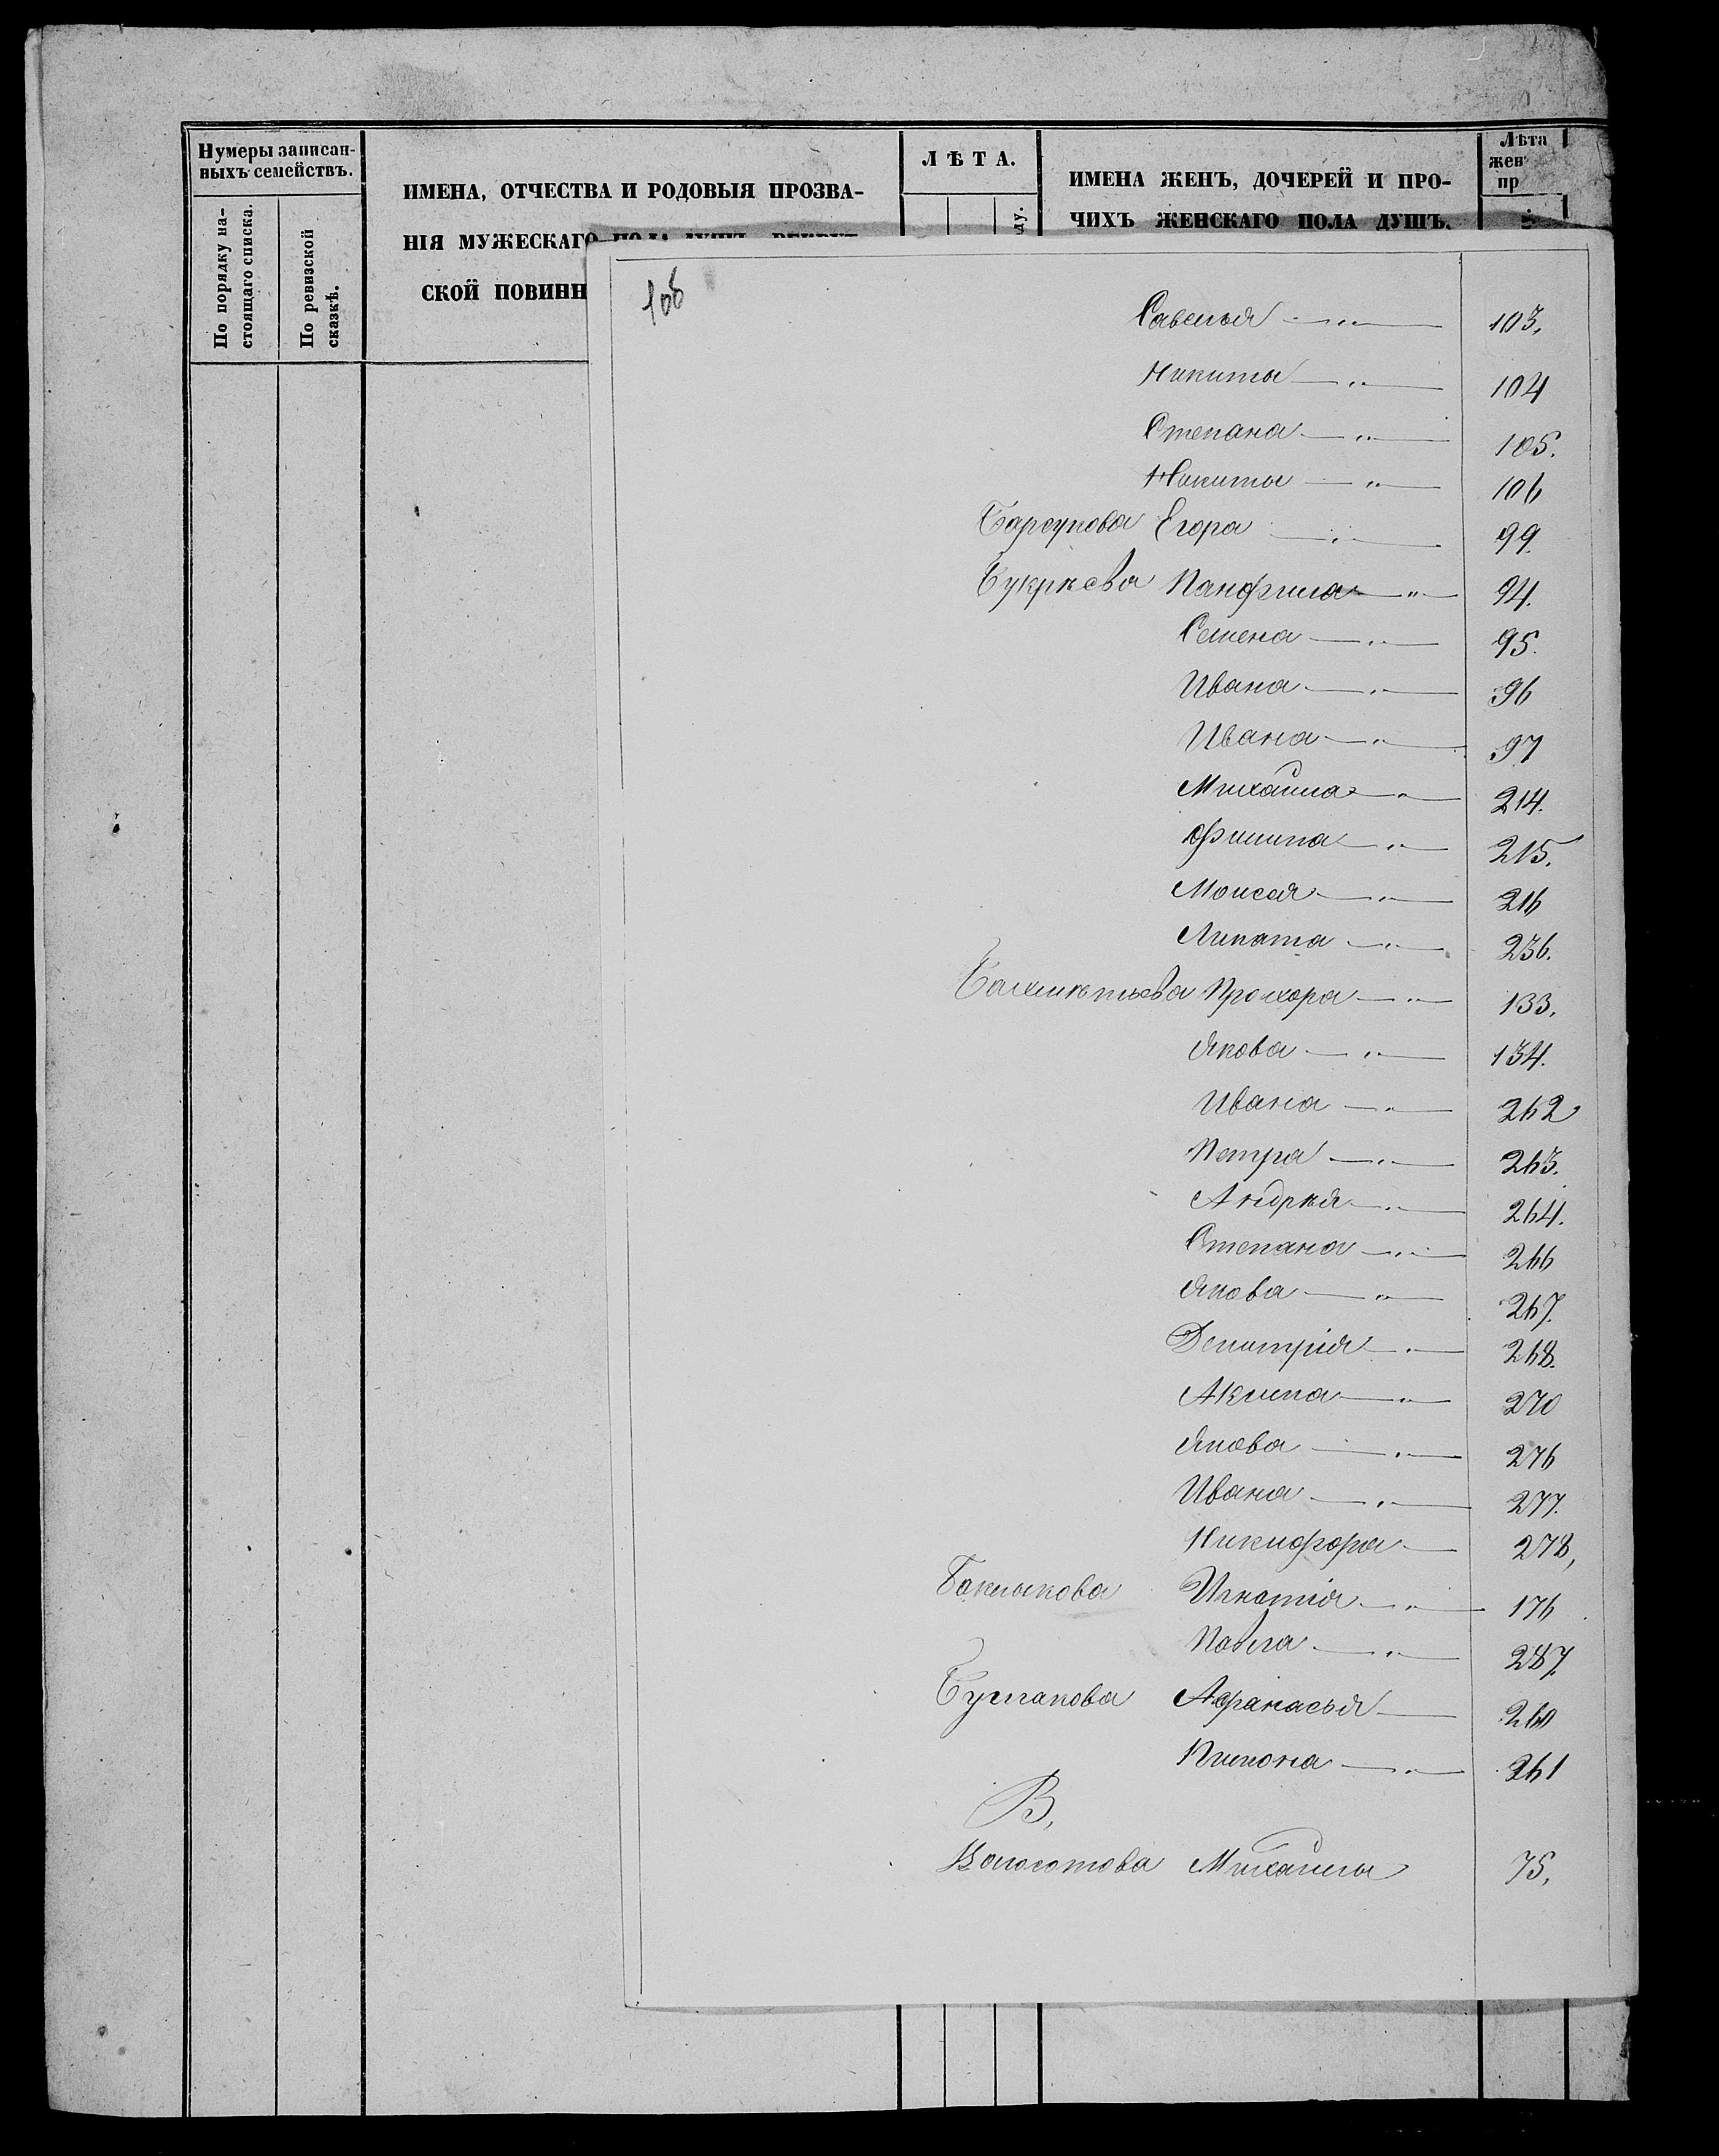 Нумеры записан-
ныхъ семействъ.
По порядку на-
стоящаго списка.
По ревизской
сказкѣ.
ИМЕНА, ОТЧЕСТВА И РОДОВЫЯ ПРОЗВА-
НІЯ МУЖЕСКАГО ПОЛА ДУШЪ, РЕКРУТ
СКОЙ ПОВИНН
ЛѢТА.
ду.
ИМЕНА ЖЕНЪ, ДОЧЕРЕЙ И ПРО-
ЧИХЪ ЖЕНСКАГО ПОЛА ДУШЪ.
Лѣта
жен
пр
108
Савелья — " — 103.
Никиты — " — 104
Степана — " — 105.
Никиты — " — 106
Барсукова Егора — " — 99.
Букрѣева Панфила — " — 94.
Семена — " — 95.
Ивана — " — 96
Ивана — " — 97
Михаила — " — 214.
Филипа — " — 215.
Моисея — " — 216
Липата — " — 236.
Прохора — " — 133.
Якова — " — 134.
Ивана — " — 262
Петра — " — 263.
Андрѣя — " — 264.
Степана — " — 266
Якова — " — 267.
Демитрія — " — 268.
Акима — " — 270
Якова — " — 276
Ивана — " — 277.
Никифора — 278,
Баклыкова Игнатія — " — 176
Павла — " — 287.
Булгакова Афанасья — 260
Пимона — " — 261
В.
Волосотова Михаилы 75,